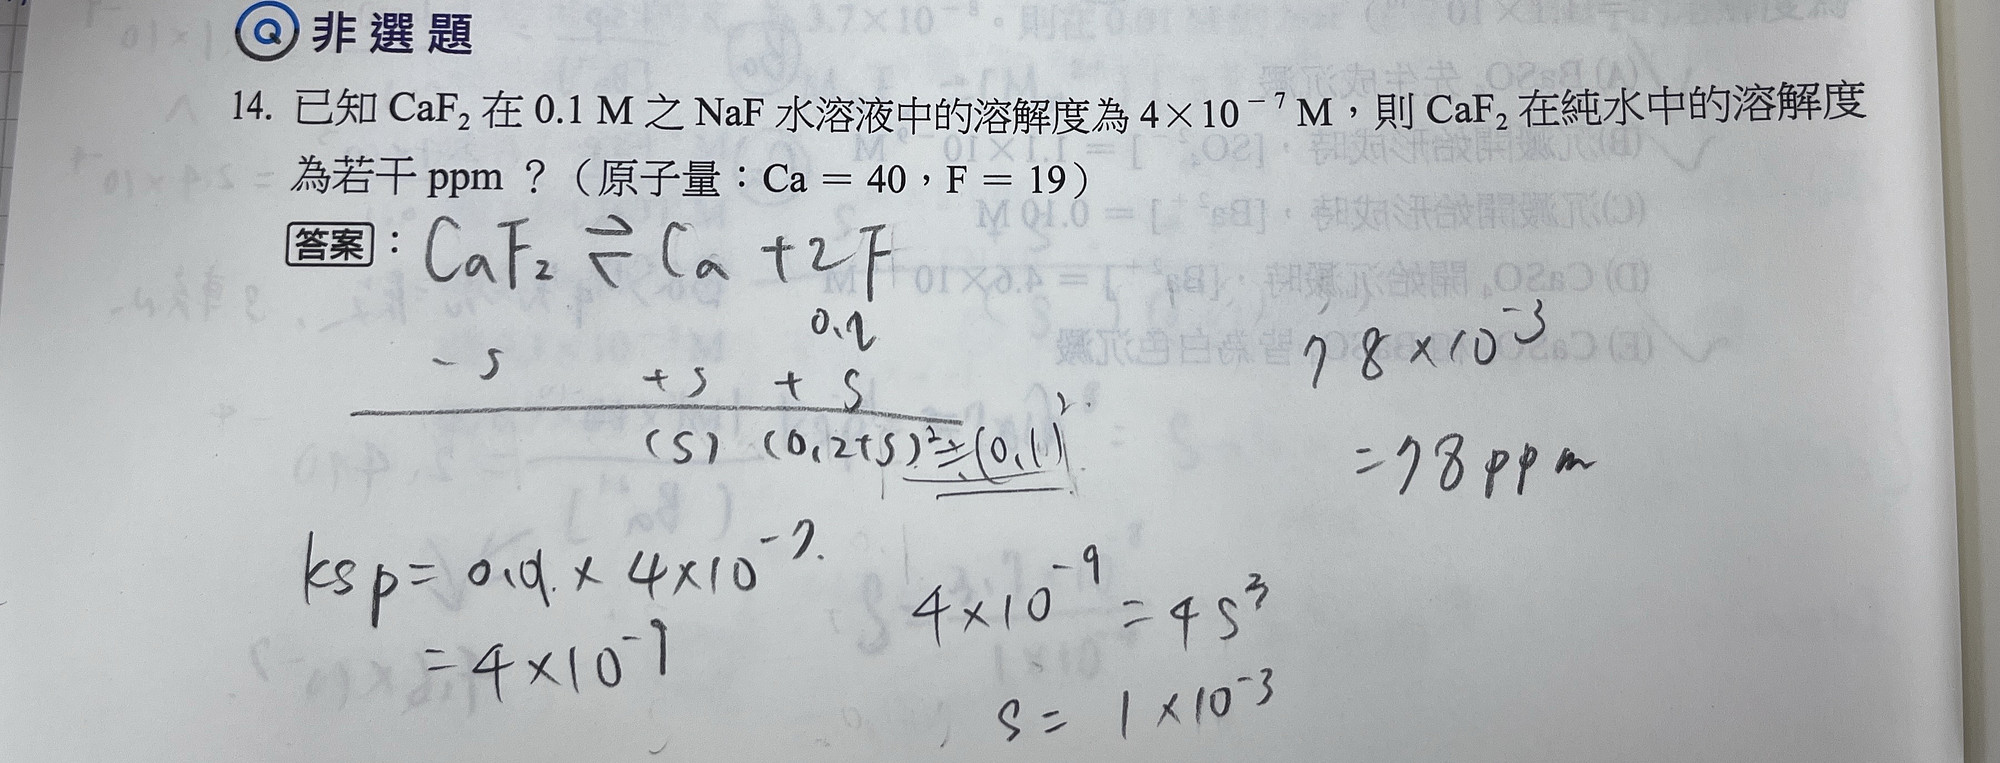 Q 非選題
14. 已知 CaF₂ 在 0.1 M 之 NaF 水溶液中的溶解度為 4×10⁻⁷ M，則 CaF₂ 在純水中的溶解度
為若干 ppm ？（原子量：Ca = 40，F = 19）
答案：CaF₂ ⇌ Ca + 2F
-s +s + s
(s) (0.2+s)² ≒ (0.1)².
78×10⁻³
= 78 ppm
4×10⁻⁷.
= 4×10⁻⁹
4×10⁻⁹ = 4s³
s = 1×10⁻³